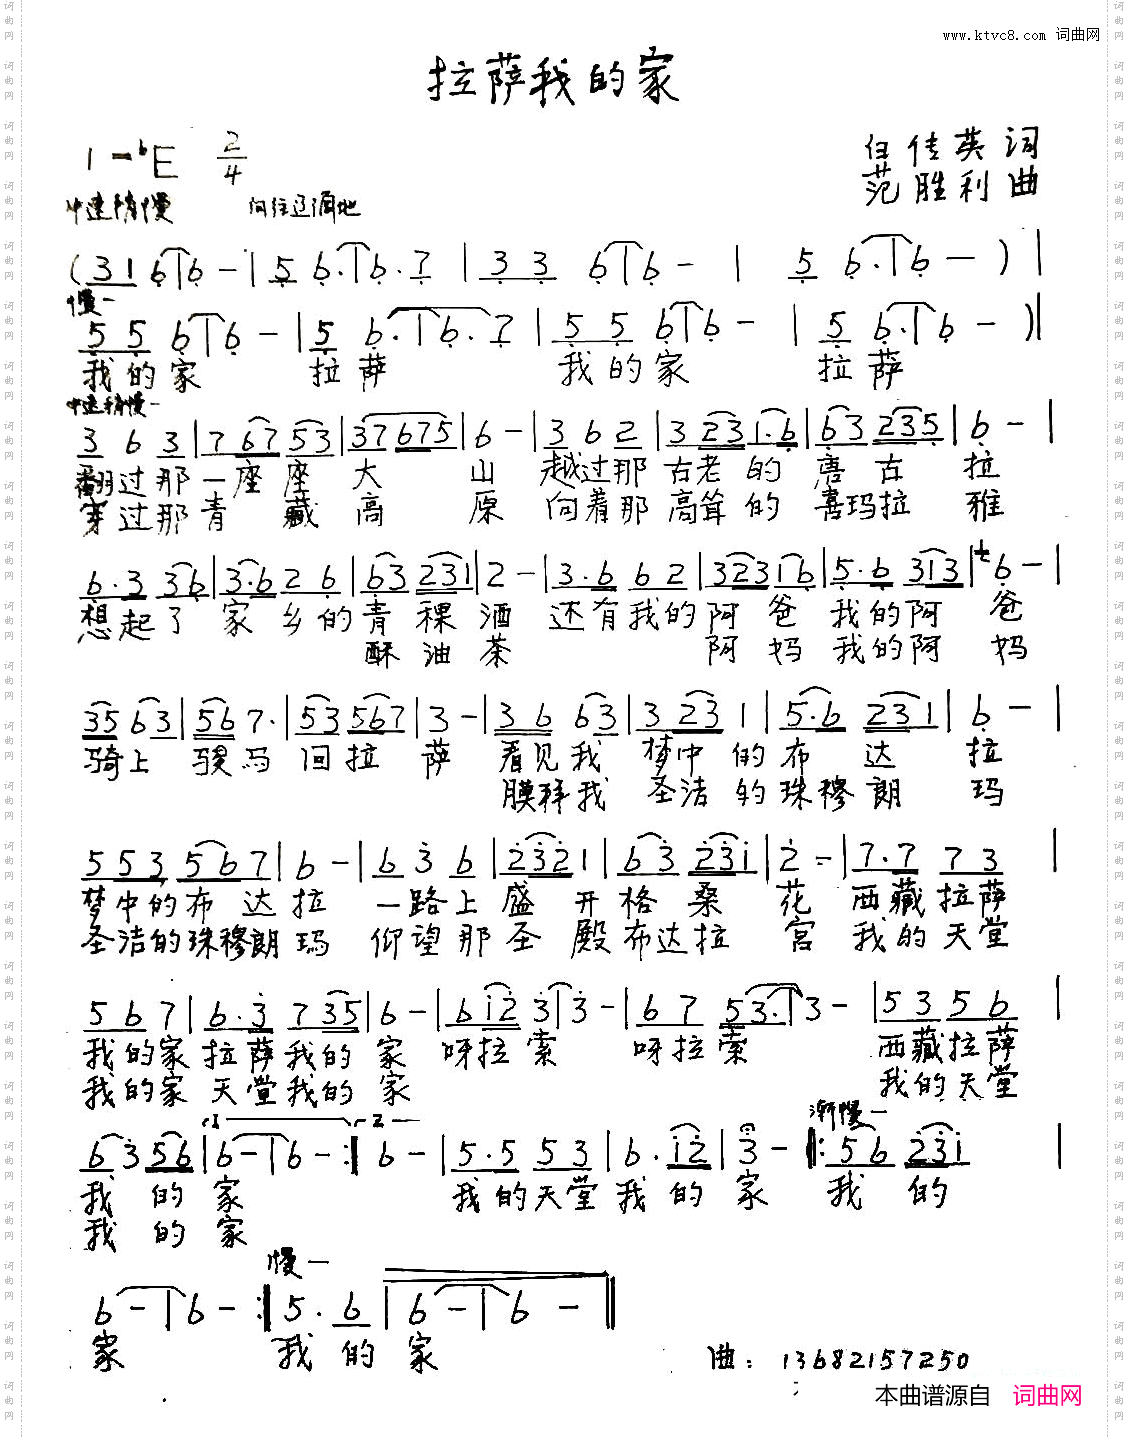 www.ktvc8.com 词曲网
拉萨我的家
1=bE 2/4
佳英词
范胜利 曲
中速稍慢
(3 1 6 | 6 - | 5 6. | 6. 7 | 3 3 6 | 6 - | 5 6. | 6 - ) |
慢一
5 5 6 | 6 - | 5 6. | 6. 7 | 5 5 6 | 6 - | 5 6. | 6 - )|
我的家 拉萨 我的家 拉萨
中速稍慢一
3 6 3 | 7 67 53 | 37675 | 6 - | 3 6 2 | 3 23 1.6 | 63 235 | 6 - |
翻过那一座座大山 越过那古老的唐古拉
穿过那青藏高原 向着那高耸的喜玛拉雅
6.3 36 | 3.6 2 6 | 63 231 | 2 - | 3.6 6 2 | 3231 6 | 5.6 313 | 6 - |
想起了家乡的青稞酒 还有我的阿爸 我的阿爸
酥油茶 阿妈 我的阿妈
35 63 | 56 7. | 53 567 | 3 - | 36 63 | 3 23 1 | 5.6 231 | 6 - |
骑上骏马回拉萨 看见我梦中的布达拉
膜拜我圣洁的珠穆朗玛
5 5 3 56 7 | 6 - | 6 3 6 | 2321 | 6 3 231 | 2 - | 7.7 7 3 |
梦中的布达拉 一路上盛开格桑花 西藏拉萨
圣洁的珠穆朗玛 仰望那圣殿布达拉宫 我的天堂
5 6 7 | 6.3 7 35 | 6 - | 6 12 3 | 3 - | 6 7 53. | 3 - | 5 3 5 6 |
我的家拉萨我的家 呀拉索 呀拉索 西藏拉萨
我的家天堂我的家 我的天堂
1 2 渐慢一
6 3 56 | 6 - | 6 - :| 6 - | 5.5 5 3 | 6. 12 | 3 - |: 5 6 231 |
我的家 我的天堂我的家 我的
我的家
慢一
6 - | 6 - :| 5. 6 | 6 - | 6 - ||
家 我的家
曲：13682157250
本曲谱源自 词曲网